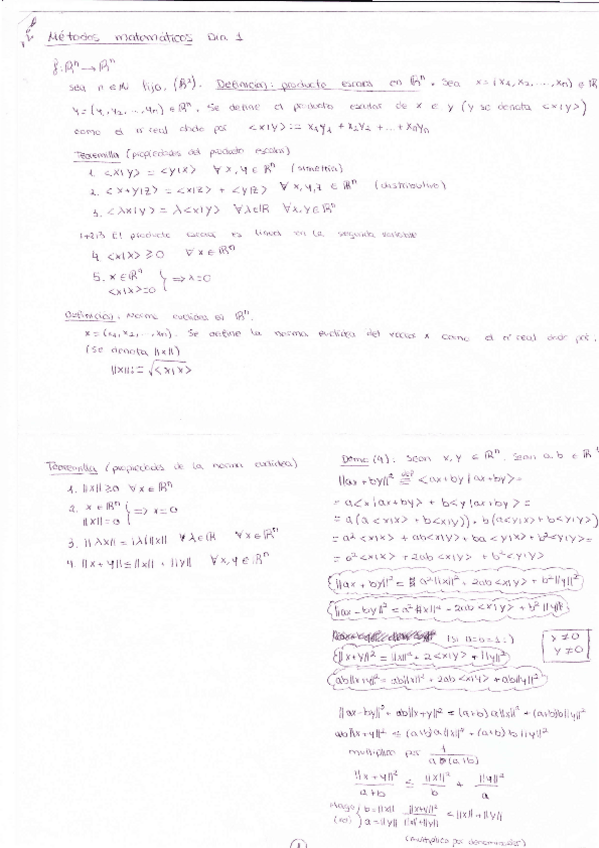 Métodos matemáticos Día 1
f: ℝⁿ → ℝⁿ
Sea n ∈ ℕ fijo, (ℝ²). Definición: producto escalar en ℝⁿ. Sea x = (x₁, x₂, ..., xₙ) ∈ ℝ
y = (y₁, y₂, ..., yₙ) ∈ ℝⁿ. Se define el producto escalar de x e y (y se denota <x|y>)
como el nº real dado por <x|y> := x₁y₁ + x₂y₂ + ... + xₙyₙ
Teoremilla (propiedades del producto escalar)
1. <x|y> = <y|x> ∀ x, y ∈ ℝⁿ (simetría)
2. <x+y|z> = <x|z> + <y|z> ∀ x, y, z ∈ ℝⁿ (distributiva)
3. <λx|y> = λ<x|y> ∀λ∈ℝ ∀x, y ∈ ℝⁿ
1+2+3 El producto escalar es lineal en la segunda variable
4. <x|x> ≥ 0 ∀ x ∈ ℝⁿ
5. x ∈ ℝⁿ
<x|x> = 0 } ⟹ x = 0
Definición. Norma euclídea en ℝⁿ.
x = (x₁, x₂, ..., xₙ). Se define la norma euclídea del vector x como el nº real dado por.
(se denota ||x||)
||x|| := √<x|x>
Teoremilla (propiedades de la norma euclídea)
1. ||x|| ≥ 0 ∀ x ∈ ℝⁿ
2. x ∈ ℝⁿ
||x|| = 0 } ⟹ x = 0
3. ||λx|| = |λ| ||x|| ∀ λ ∈ ℝ ∀ x ∈ ℝⁿ
4. ||x + y|| ≤ ||x|| + ||y|| ∀ x, y ∈ ℝⁿ
Demo (4): Sean x, y ∈ ℝⁿ. Sean a, b ∈ ℝ
||ax + by||² = <ax + by | ax + by> =
= a<x|ax+by> + b<y|ax+by> =
= a(a<x|x> + b<x|y>) + b(a<y|x> + b<y|y>)
= a²<x|x> + ab<x|y> + ba<y|x> + b²<y|y> =
= a²<x|x> + 2ab<x|y> + b²<y|y>
||ax + by||² = a²||x||² + 2ab<x|y> + b²||y||²
||ax - by||² = a²||x||² - 2ab<x|y> + b²||y||²
(si b=a=1:) x ≠ 0
y ≠ 0
||x+y||² = ||x||² + 2<x|y> + ||y||²
ab||x+y||² = ab||x||² + 2ab<x|y> + ab||y||²
||ax - by||² + ab||x+y||² = (a+b)a||x||² + (a+b)b||y||²
ab||x+y||² ≤ (a+b)a||x||² + (a+b)b||y||²
multiplico por 1/ab(a+b)
||x+y||²/a+b ≤ ||x||²/b + ||y||²/a
Hago b = ||x||
a = ||y|| ||x+y||²/||x||+||y|| ≤ ||x|| + ||y||
(multiplico por denominador)
1